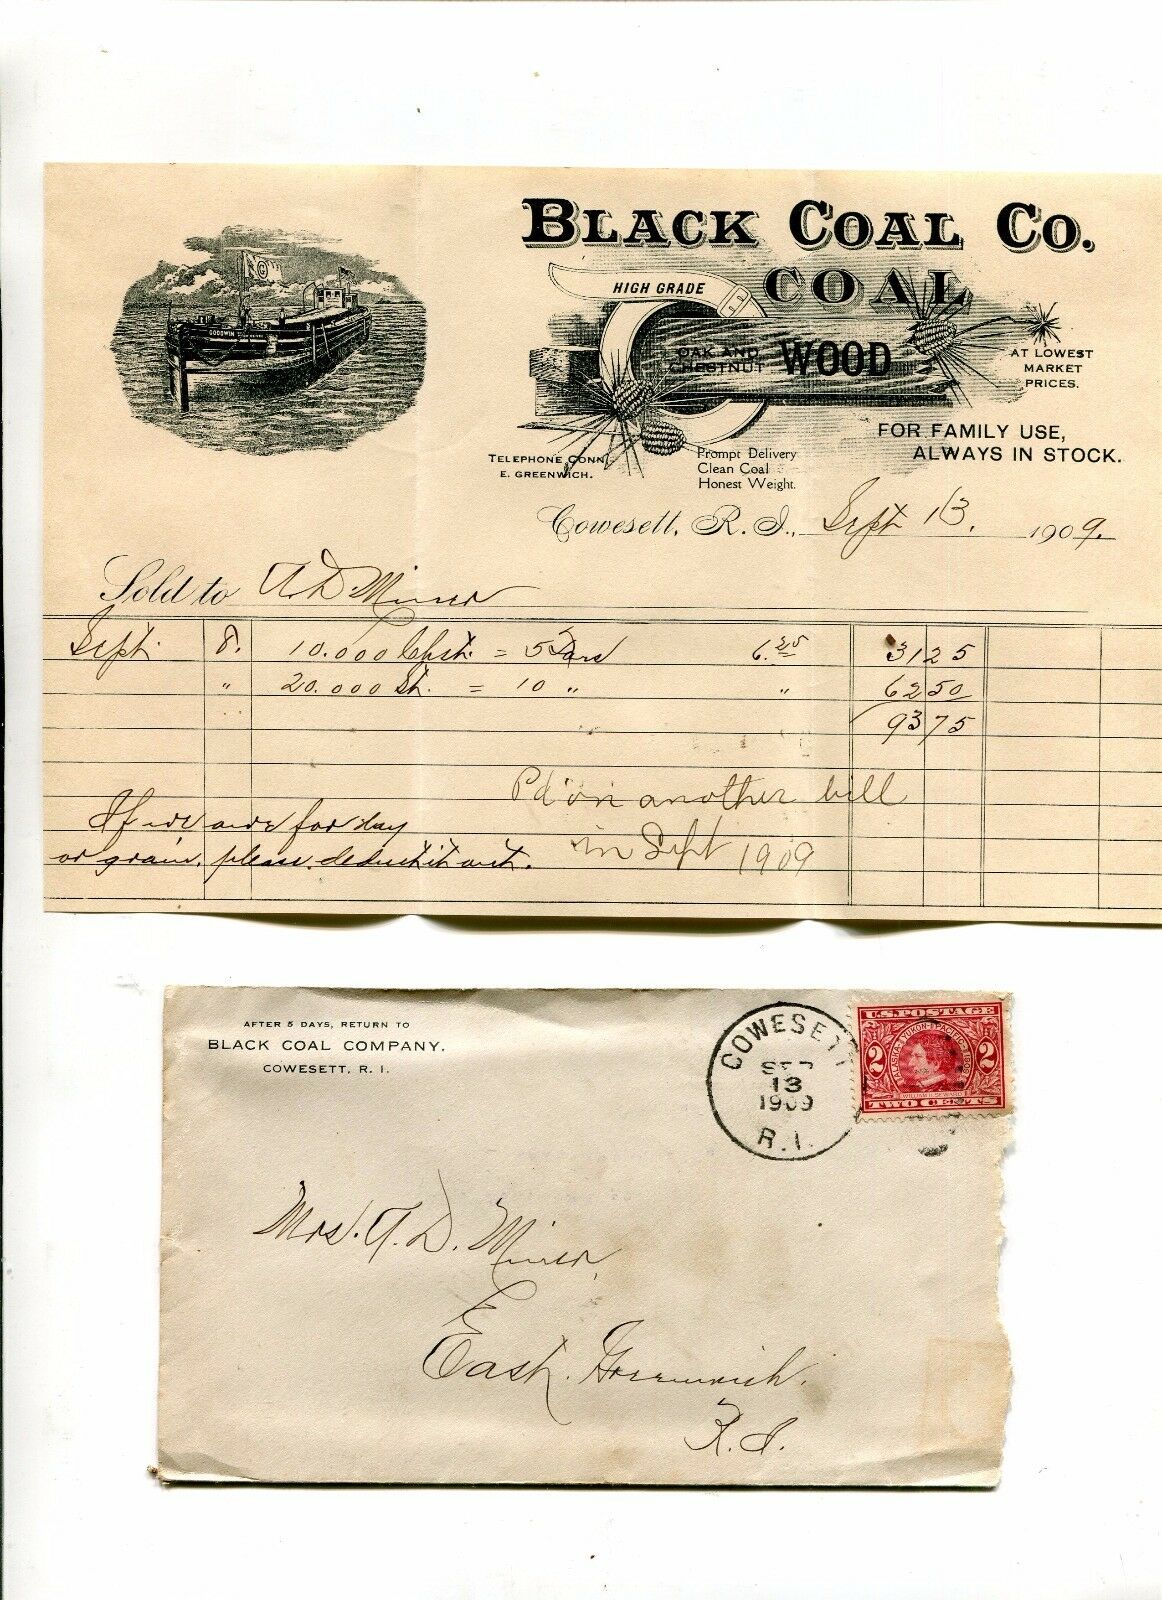 BLACK COAL CO.
HIGH GRADE
COAL
OAK AND
CHESTNUT
WOOD
AT LOWEST
MARKET
PRICES.
FOR FAMILY USE,
ALWAYS IN STOCK.
GOODWIN
TELEPHONE CONN.
E. GREENWICH.
Prompt Delivery
Clean Coal
Honest Weight.
Cowesett, R. I., Sept 13, 1909.
Sold to A. D. Miner
Sept. 8. 10.000 Chst. = 5 Tons 6.25 31 25
" 20.000 St. = 10 " " 62 50
93 75
Pd on another bill
in Sept 1909
If we owe for hay
or grain, please deduct it out.
AFTER 5 DAYS, RETURN TO
BLACK COAL COMPANY.
COWESETT, R. I.
COWESETT
SEP
13
1909
R.I.
U.S. POSTAGE
ALASKA-YUKON-PACIFIC 1909
2 2
WILLIAM H. SEWARD
TWO CENTS
Mrs. A. D. Miner,
East. Greenwich.
R. I.